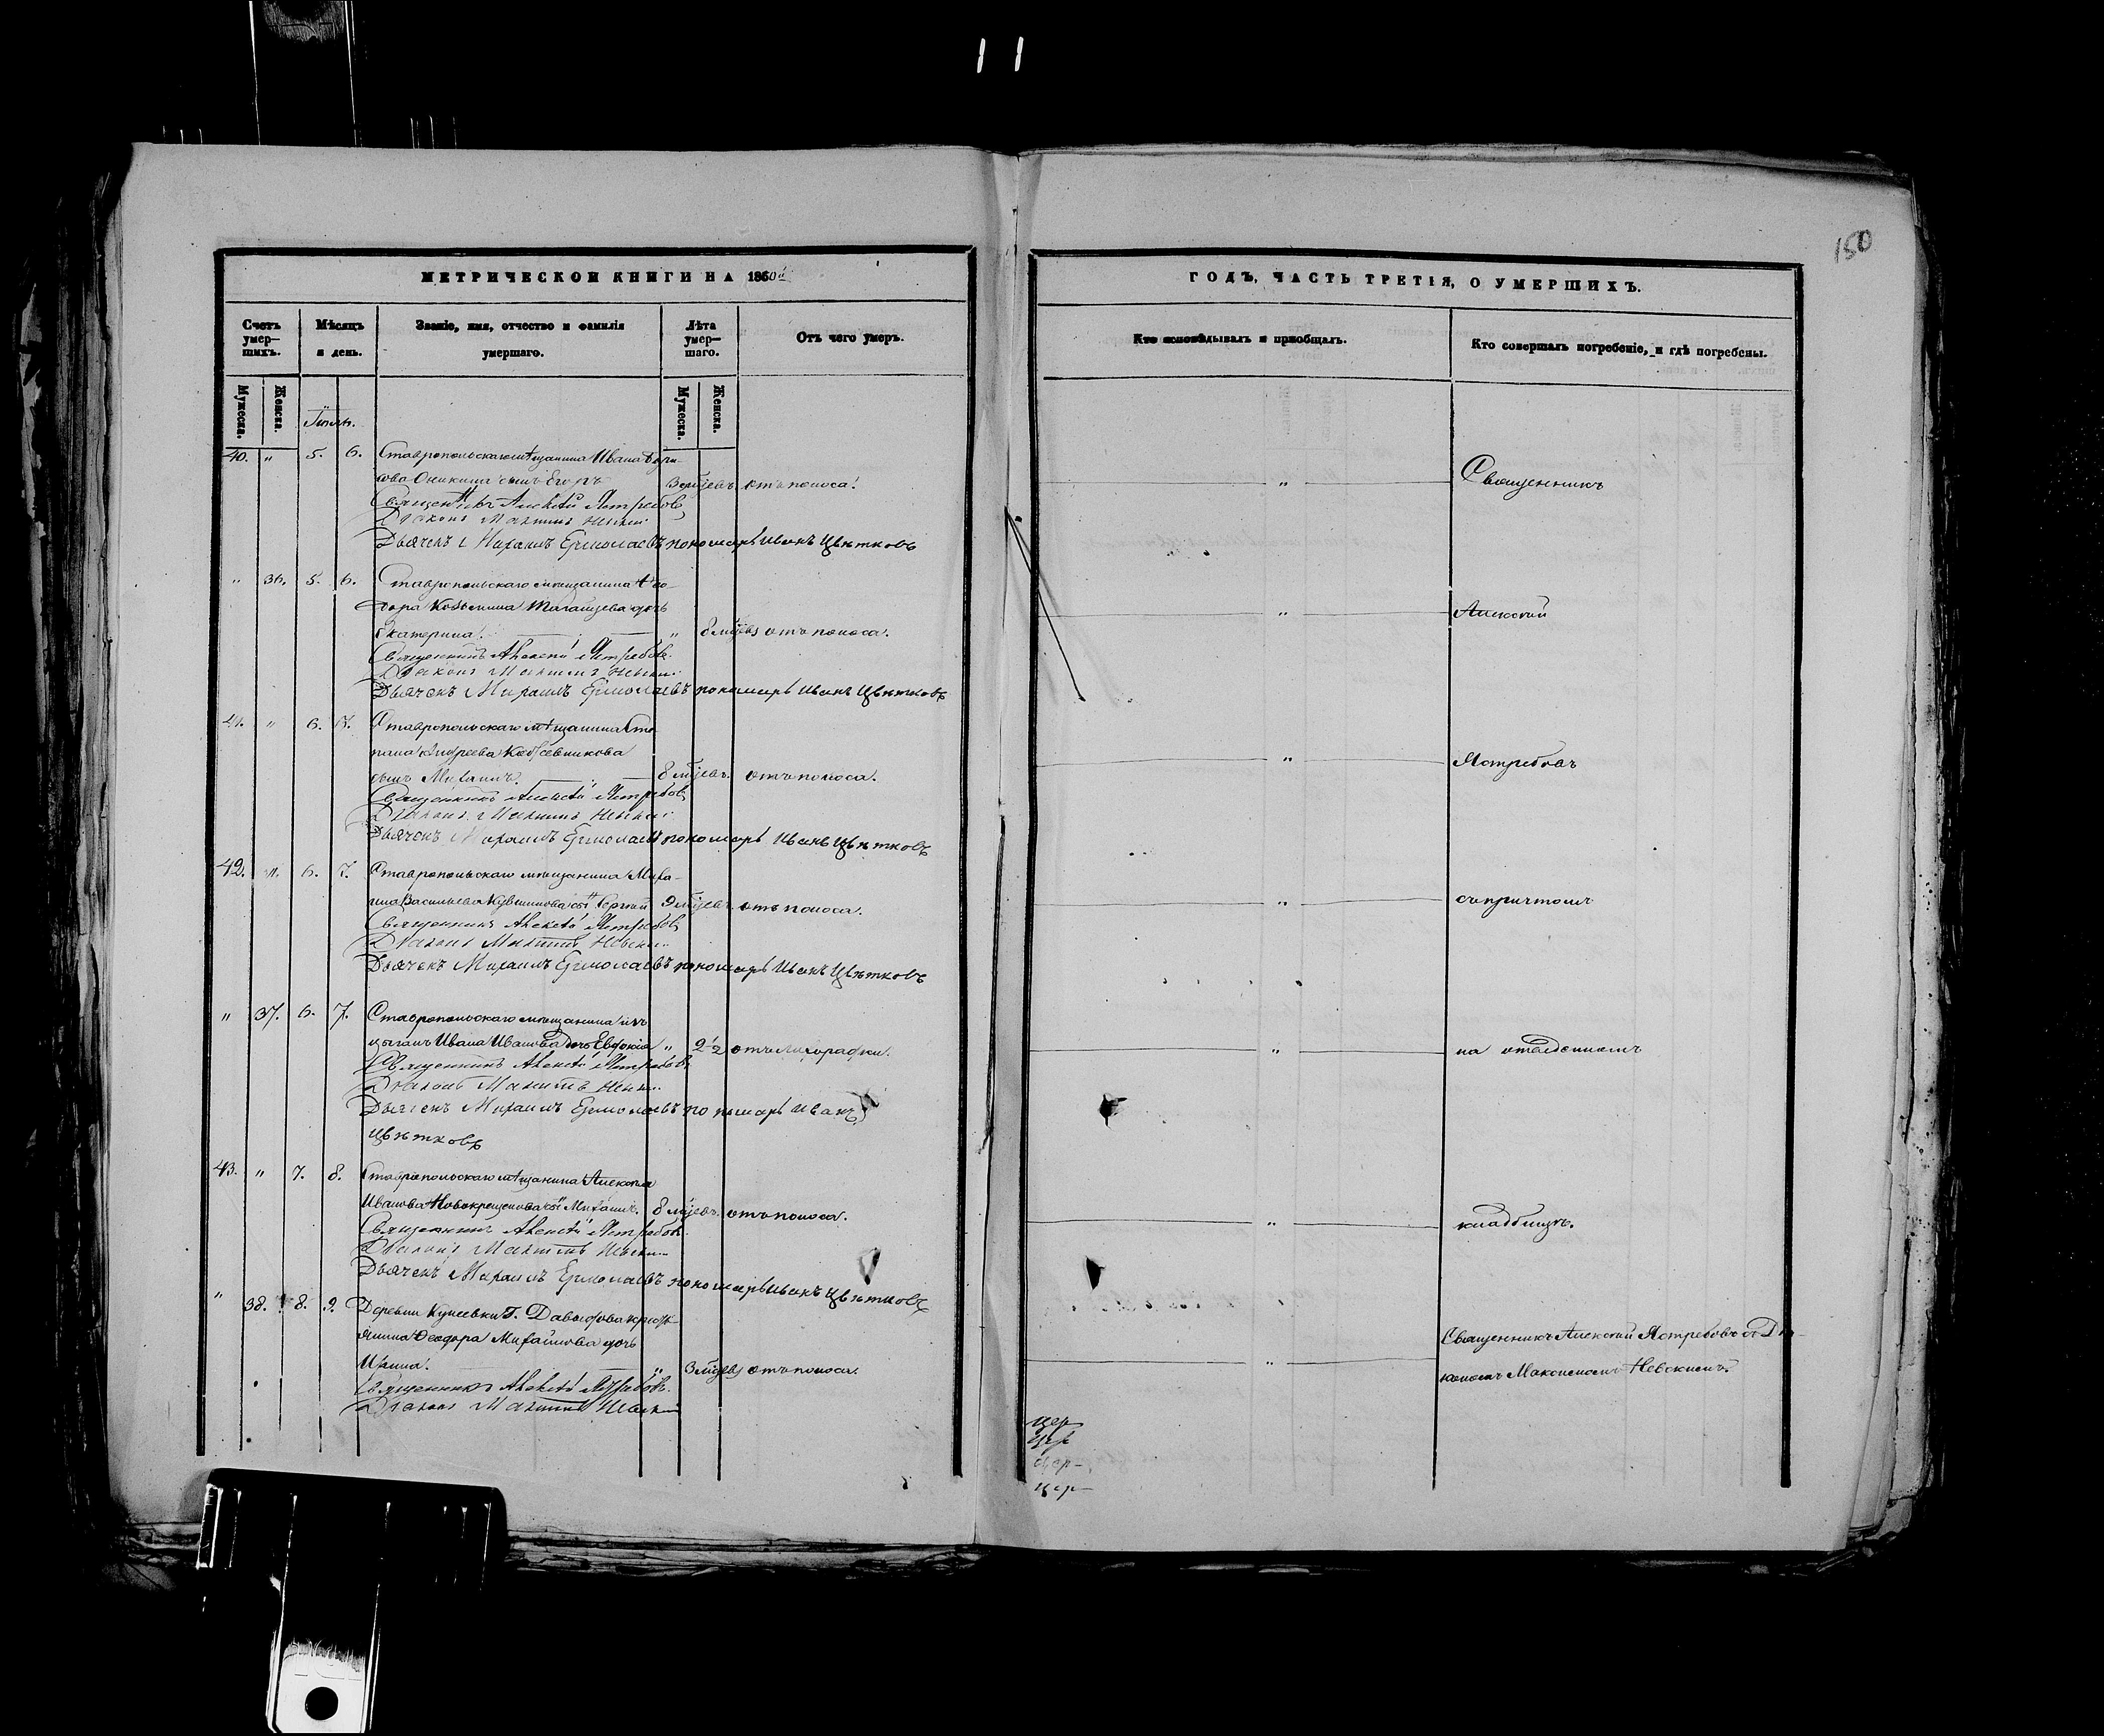 11
150
МЕТРИЧЕСКОИ КНИГИ НА 1860й
Счетъ умер-шихъ.
Мѣсяцъ и день.
Званіе, имя, отчество и фамилія умершаго.
Лѣта умер-шаго.
Отъ чего умеръ.
Мужеска.
Женска.
Мужеска.
Женска.
40. " 5. 6. Ставропольскаго мѣщанина Ивана
сынъ Егоръ отъ поноса.
Священникъ Алексѣй Ястребовъ
Діаконъ Максимъ Невскій
Дьячекъ Михаилъ Ермолаевъ пономарь Иванъ Цвѣтковъ
" 36. 5. 6. Ставропольскаго мѣщанина Ѳео-
дора Козьмина дочь
Екатерина. " 8 мцевъ отъ поноса.
Священникъ Алексѣй Ястребовъ
Діаконъ Максимъ Невскій
Дьячекъ Михаилъ Ермолаевъ пономарь Иванъ Цвѣтковъ
41. " 6. 7. Ставропольскаго мѣщанина Сте
пана Андреева Кожевникова
сынъ Михаилъ. 8 мцевъ. отъ поноса.
Священникъ Алексѣй Ястребовъ
Діаконъ Максимъ Невскій
Дьячекъ Михаилъ Ермолаевъ пономарь Иванъ Цвѣтковъ
42. " 6. 7. Ставропольскаго мѣщанина Миха-
ила Васильева Сергій 9 мцевъ отъ поноса.
Священникъ Алексѣй Ястребовъ
Діаконъ Максимъ Невскій
Дьячекъ Михаилъ Ермолаевъ пономарь Иванъ Цвѣтковъ
" 37. 6. 7. Ставропольскаго мѣщанина изъ
цыганъ Ивана Иванова дочь Евдокія " 2 1/2 отъ лихорадки.
Священникъ Алексѣй Ястребовъ
Діаконъ Максимъ Невскій
Дьячекъ Михаилъ Ермолаевъ пономарь Иванъ
Цвѣтковъ
43. " 7. 8. Ставропольскаго мѣщанина Алексѣя
Иванова Новокрещенова сынъ Михаилъ. 8 мцевъ. отъ поноса.
Священникъ Алексѣй Ястребовъ
Діаконъ Максимъ Невскій
Дьячекъ Михаилъ Ермолаевъ пономарь Иванъ Цвѣтковъ
" 38. 8. 9. Деревни Кунеевки Г. Давыдова крестья
янина Ѳеодора Михайлова дочь
" 3 мцевъ отъ поноса.
Священникъ Алексѣй Ястребовъ
Діаконъ Максимъ Невскій
ГОДЪ, ЧАСТЬ ТРЕТІЯ, О УМЕРШИХЪ.
Кто исповѣдывалъ и пріобщалъ.
Кто совершалъ погребеніе, и гдѣ погребены.
" Священникъ
" Алексѣй
" Ястребовъ
" съ причтомъ
" на отведенномъ
" кладбищѣ.
Священникъ Алексѣй Ястребовъ съ Діа-
" кономъ Максимомъ Невскимъ.